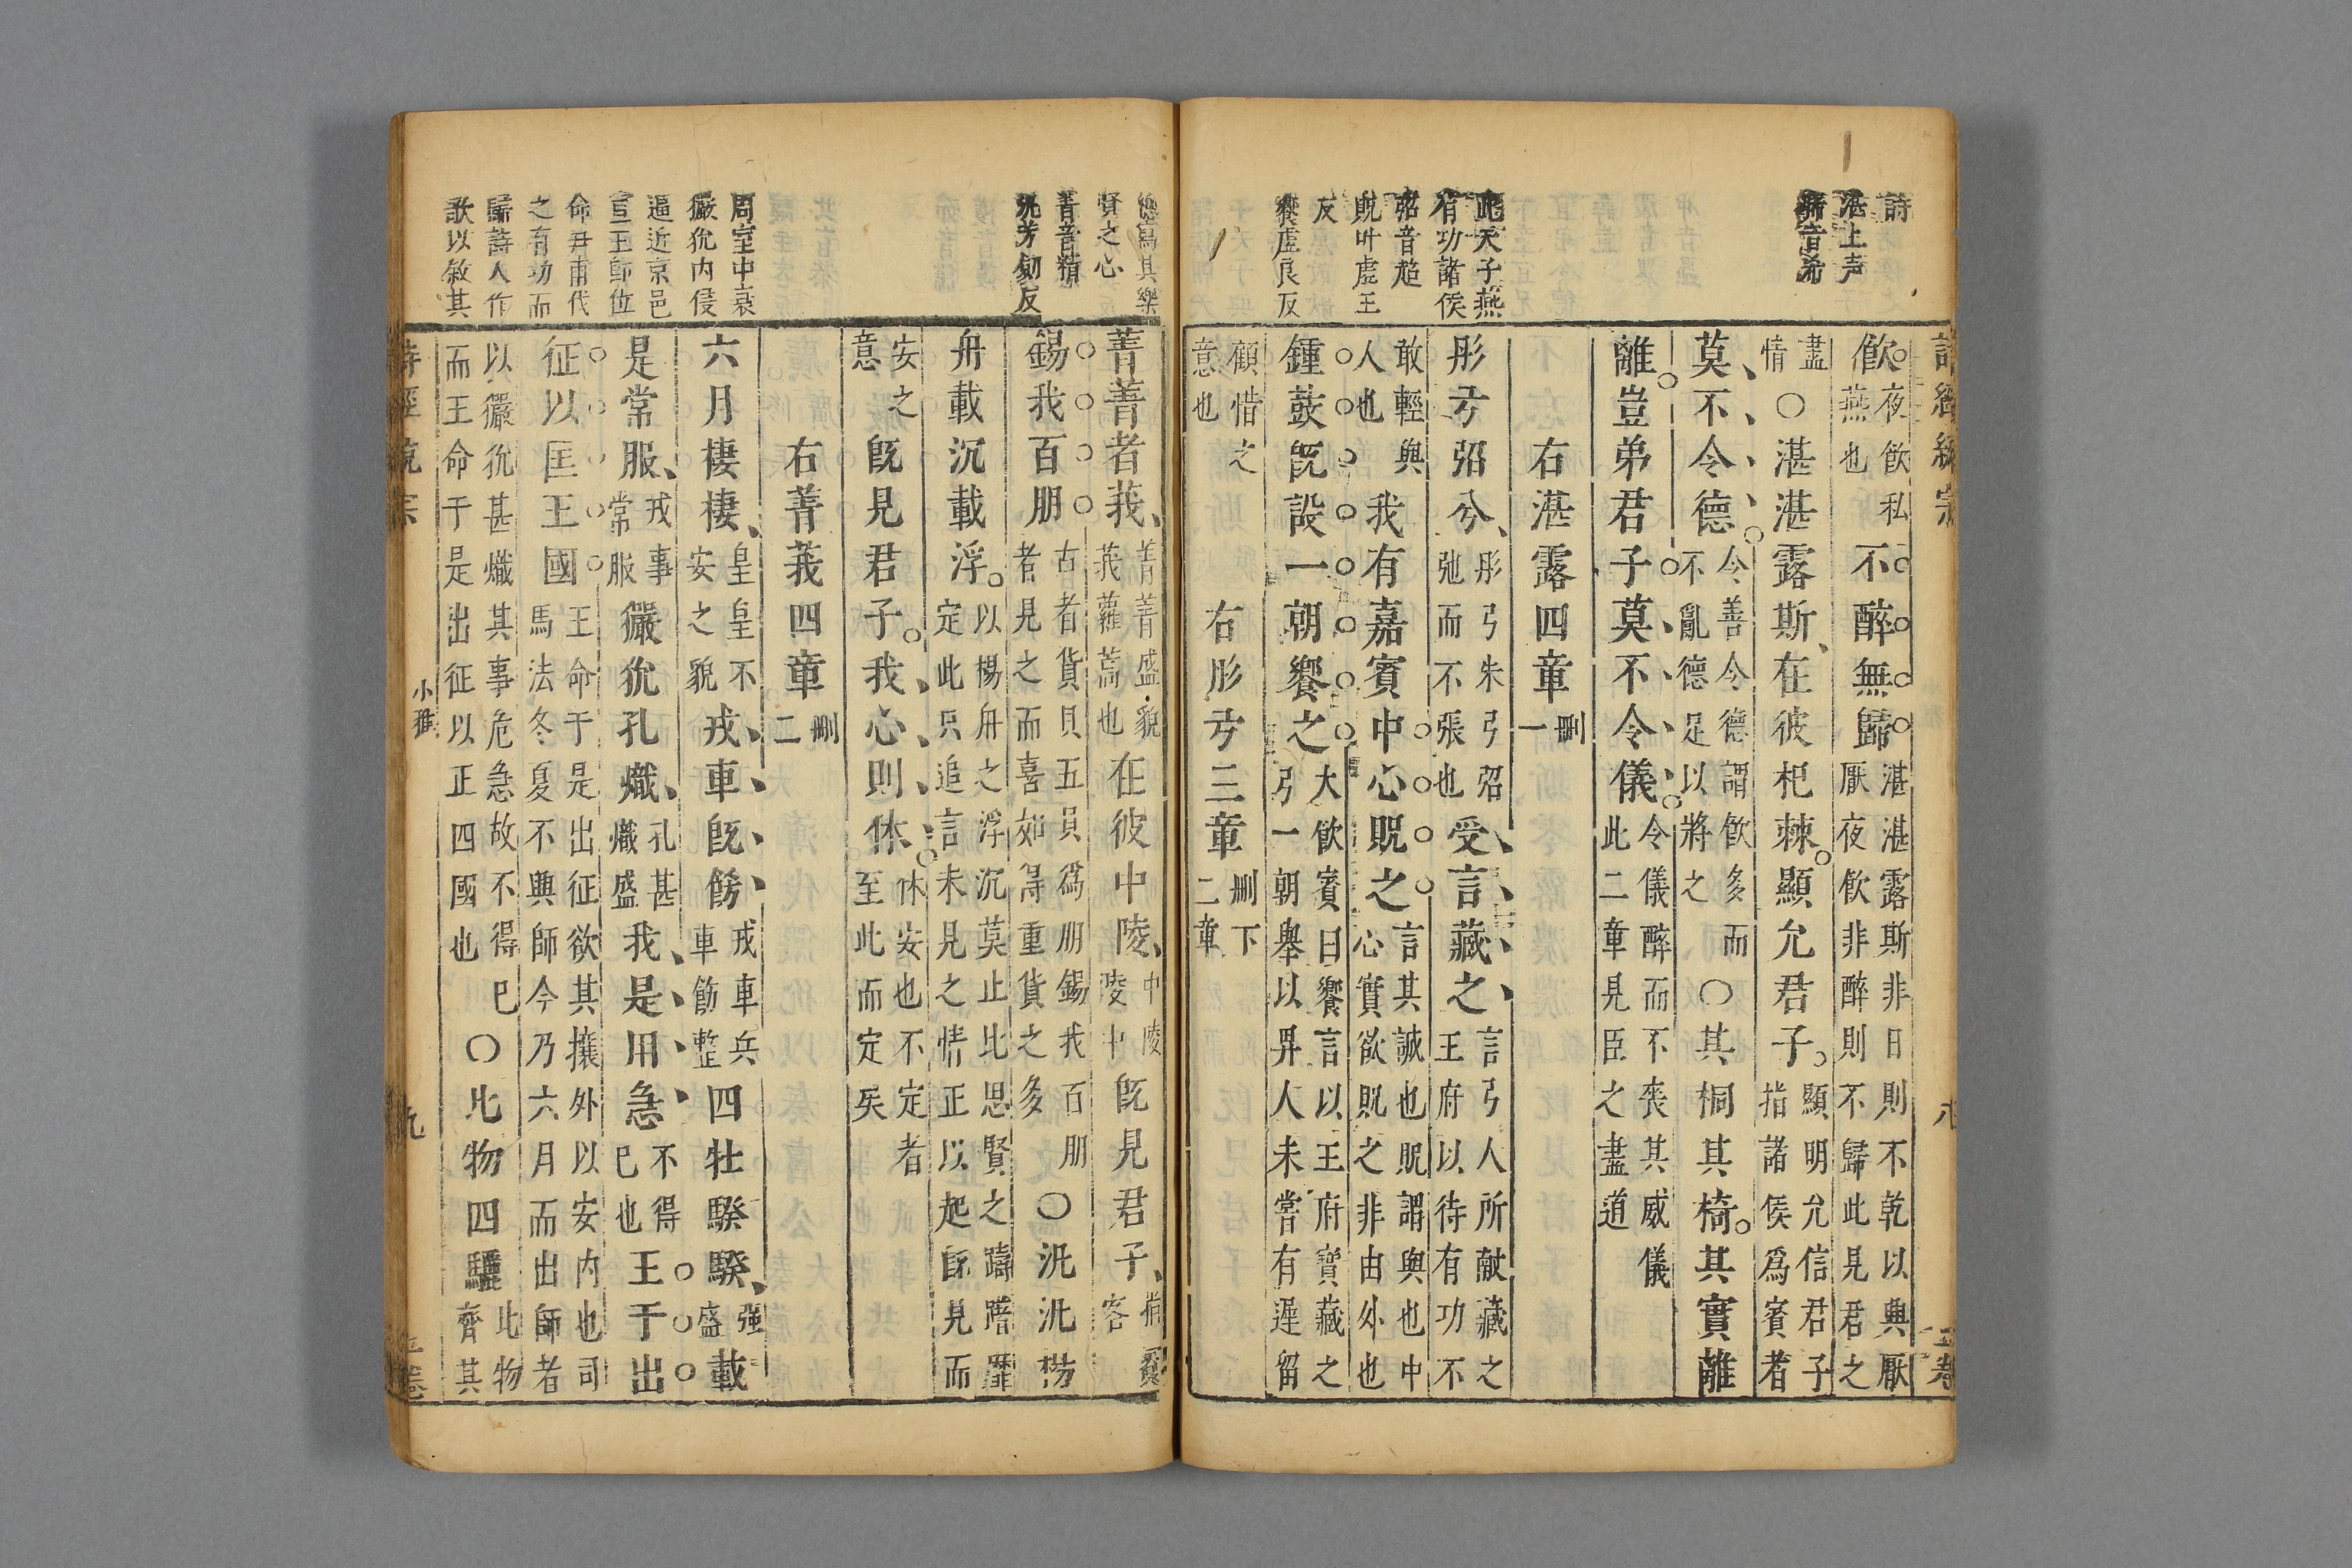 詩
湛上声
晞音希
此天子燕
有功諸侯
弨音超
貺叶虛王
反
饗虛良反
飲夜飲私燕也不醉無歸湛湛露斯非日則不乾以興厭厭夜飲非醉則不歸此見君之
盡情○湛湛露斯在彼杞棘顯允君子顯明允信君子指諸侯為賓者
莫不令德令善令德謂飲多而不亂德足以將之○其桐其椅其實離
離豈弟君子莫不令儀令儀醉而不喪其威儀此二章見臣之盡道
右湛露四章刪一
彤弓弨兮彤弓朱弓弨弛而不張也受言藏之言弓人所献藏之王府以待有功不
敢輕與人也我有嘉賓中心貺之言其誠也貺謂與也中心實欲貺之非由外也
鍾鼓既設一朝饗之大飲賓曰饗言以王府寶藏之弓一朝舉以畀人未嘗有遲留
顧惜之意也右彤弓三章刪下二章
賢之心
菁音精
汎芳劒反
周室中衰
玁狁内侵
逼近京邑
宣王即位
命尹甫代
之有功而
歸詩人作
歌以敘其
菁菁者莪菁菁盛貌莪蘿蒿也在彼中陵中陵陵中既見君子指賓客
錫我百朋古者貨貝五貝爲朋錫我百朋者見之而喜如得重貨之多○汎汎楊
舟載沉載浮以楊舟之浮沉莫止比思賢之躊躇靡定此只追言未見之情正以起既見而
安之意既見君子我心則休休安也不定者至此而定矣
右菁莪四章刪二
六月棲棲皇皇不安之貌戎車既飭戎車兵車飭整四牡騤騤强盛載
是常服戎事常服玁狁孔熾孔甚熾盛我是用急不得已也王于出
征以匡王國王命于是出征欲其攘外以安内也司馬法冬夏不興師今乃六月而出師者
以玁狁甚熾其事危急故不得已而王命于是出征以正四國也○比物四驪比物齊其
小雅
九